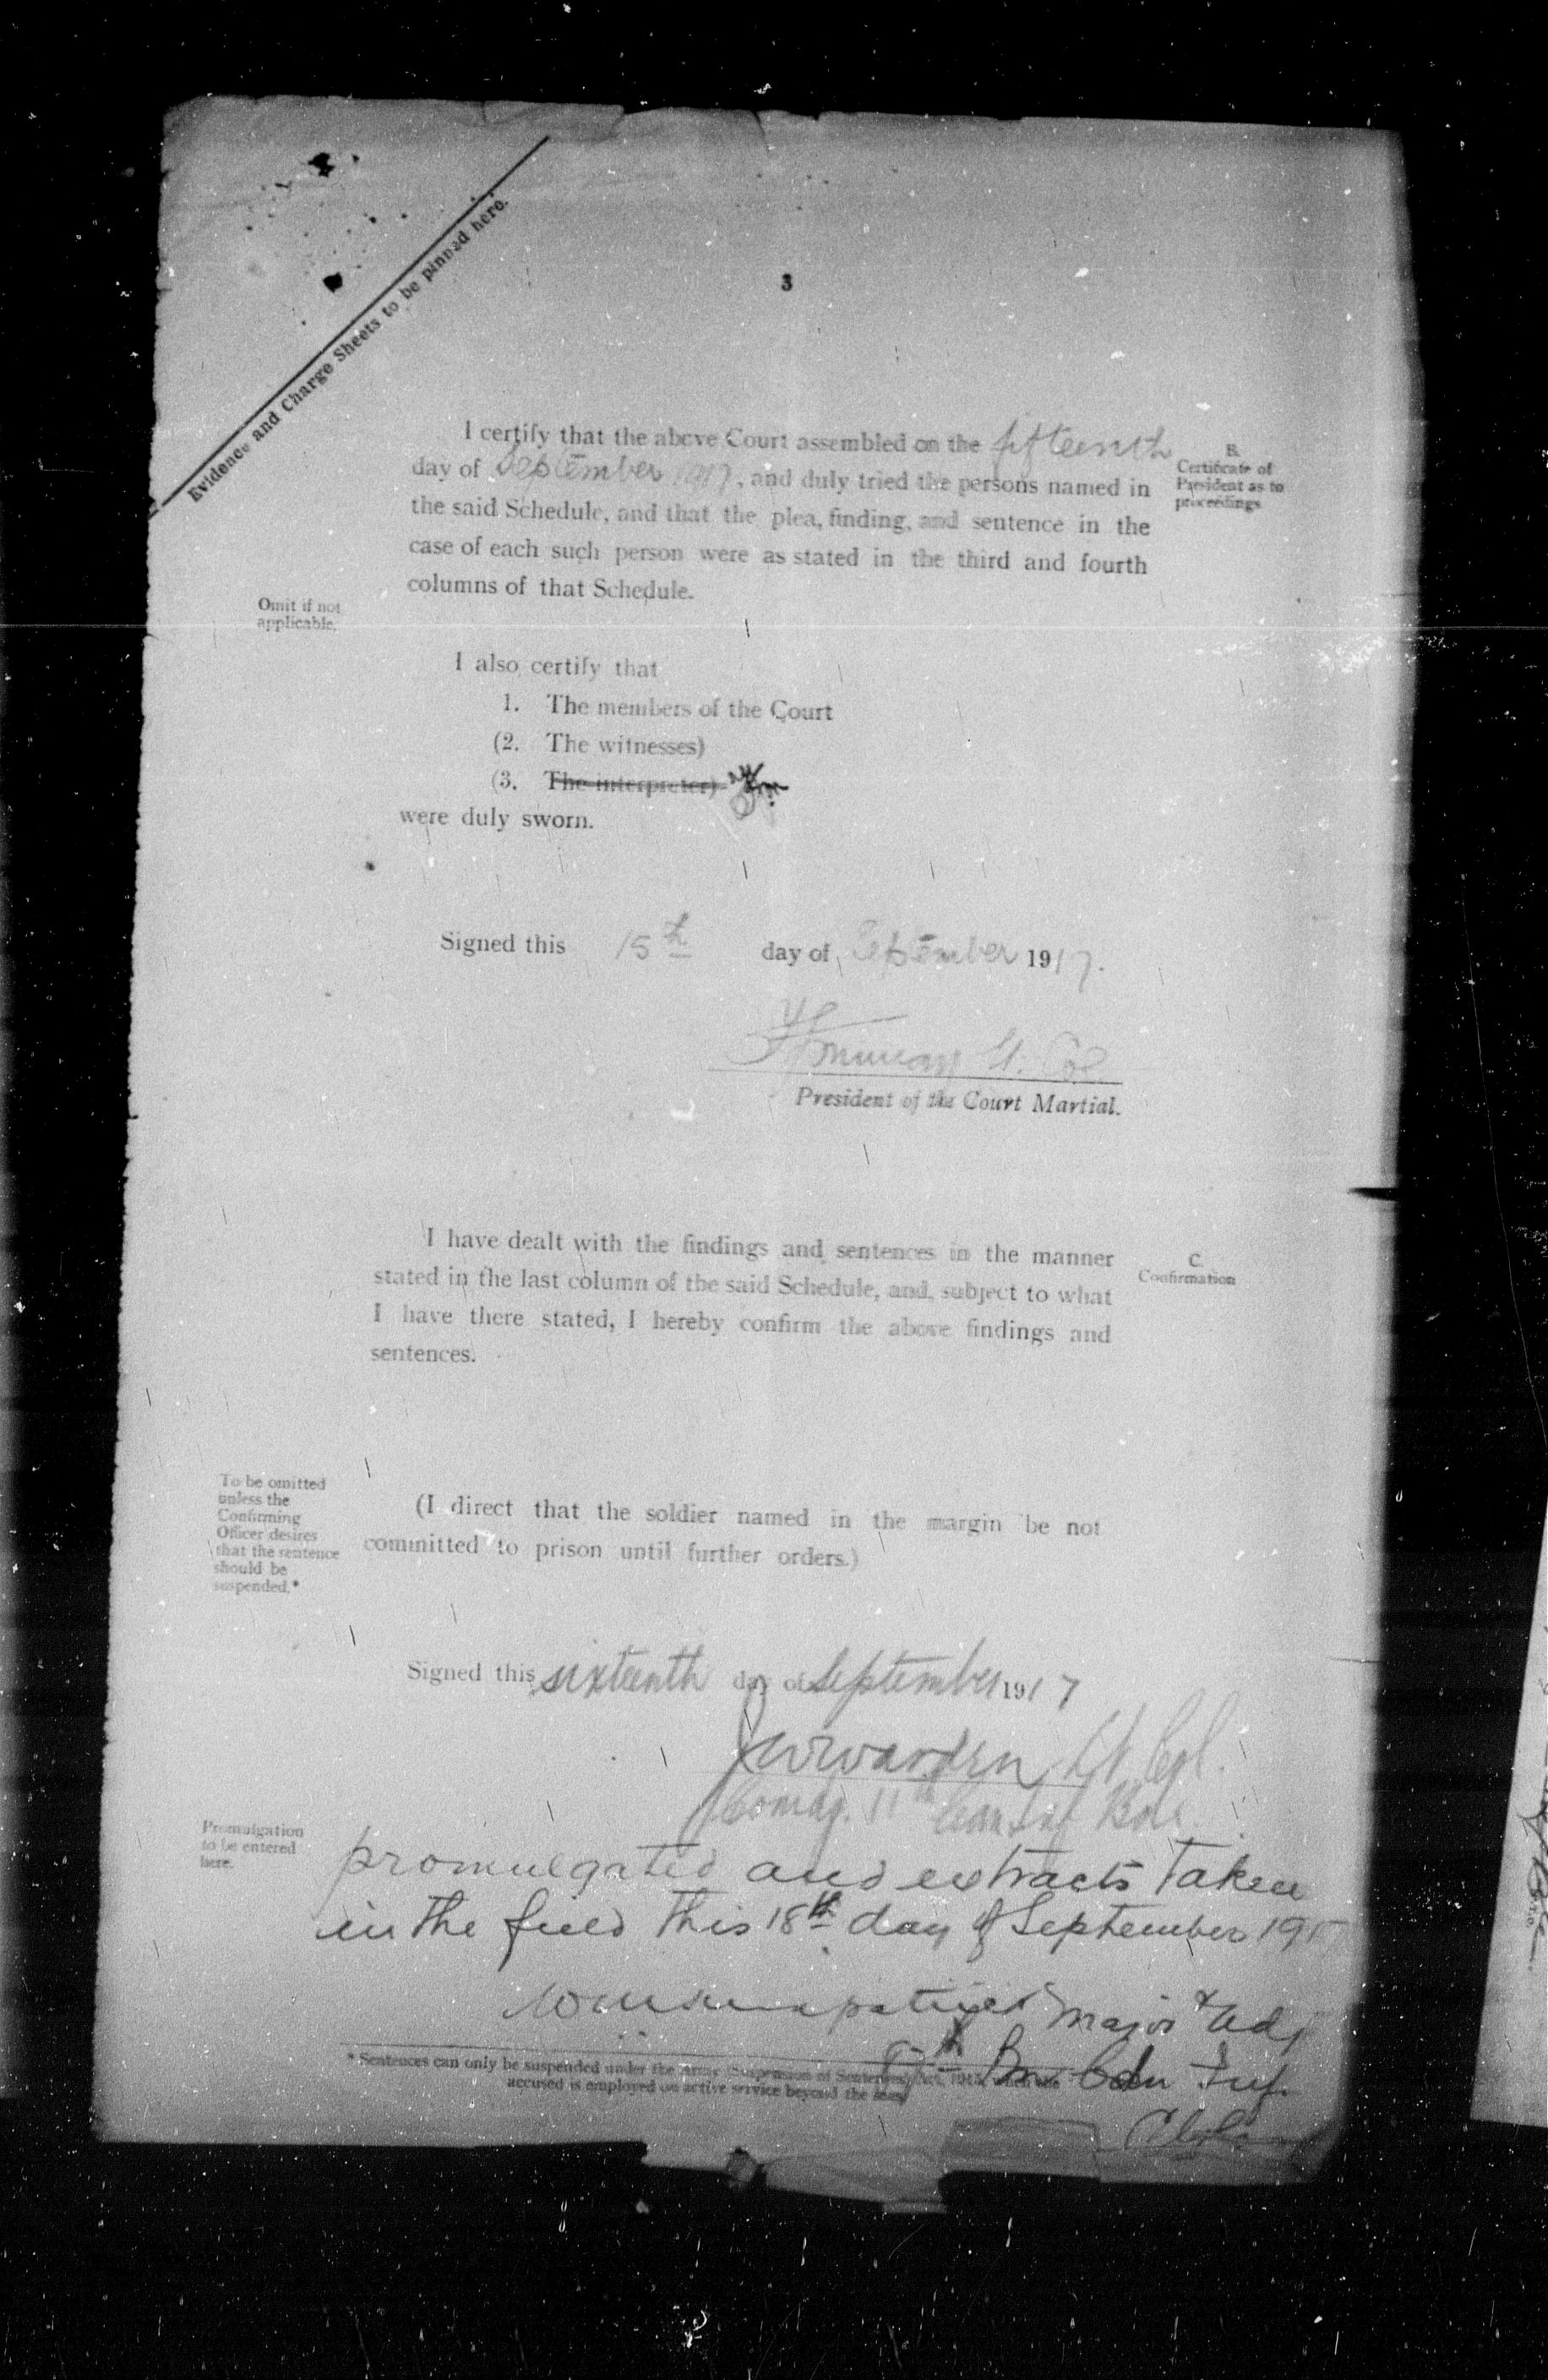 3
Evidence and Charge Sheets to be pinned here.
I certify that the above Court assembled on the fifteenth
day of September 1917, and duly tried the persons named in
the said Schedule, and that the plea, finding, and sentence in the
case of each such person were as stated in the third and fourth
columns of that Schedule.
B.
Certificate of
President as to
proceedings
Omit if not
applicable.
I also certify that
1. The members of the Court
(2. The witnesses)
(3. The interpreter)
were duly sworn.
Signed this 15th day of September 1917.
Lt. Col
President of the Court Martial.
I have dealt with the findings and sentences in the manner
stated in the last column of the said Schedule, and, subject to what
I have there stated, I hereby confirm the above findings and
sentences.
C.
Confirmation
To be omitted
unless the
Confirming
Officer desires
that the sentence
should be
suspended.*
(I direct that the soldier named in the margin be not
committed to prison until further orders.)
Signed this sixteenth day of September 1917
Lt Col.
Comdg. 11th Can Inf Bde.
Promulgation
to be entered
here.
promulgated and extracts taken
in the field this 18th day of September 191
Major & Adj
Bn. Cdn Inf.
* Sentences can only be suspended under the Army (Suspension of Sentences) Act, 1915, when the
accused is employed on active service beyond the seas